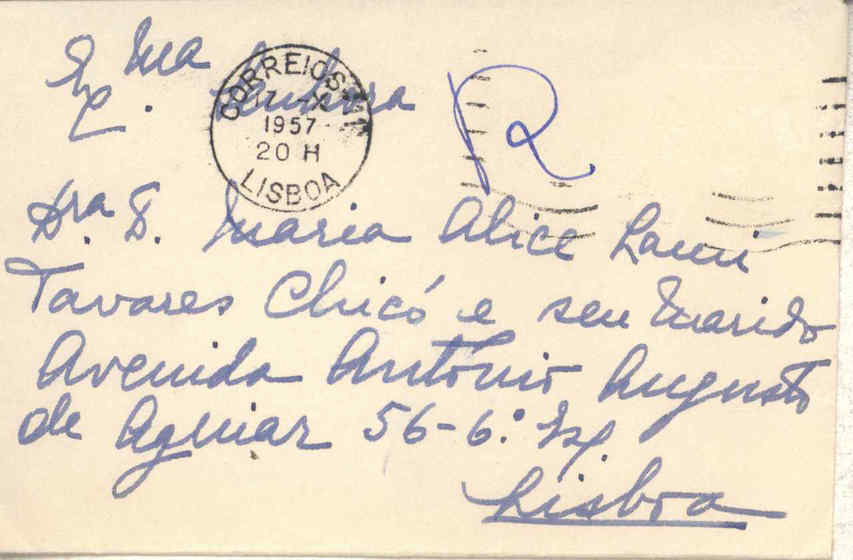 Ex.ma Senhora
CORREIOS
X
1957
20 H
LISBOA
R
Dra. D. Maria Alice Lami
Tavares Chicó e seu marido
Avenida António Augusto
de Aguiar 56-6.º Esq.
Lisboa